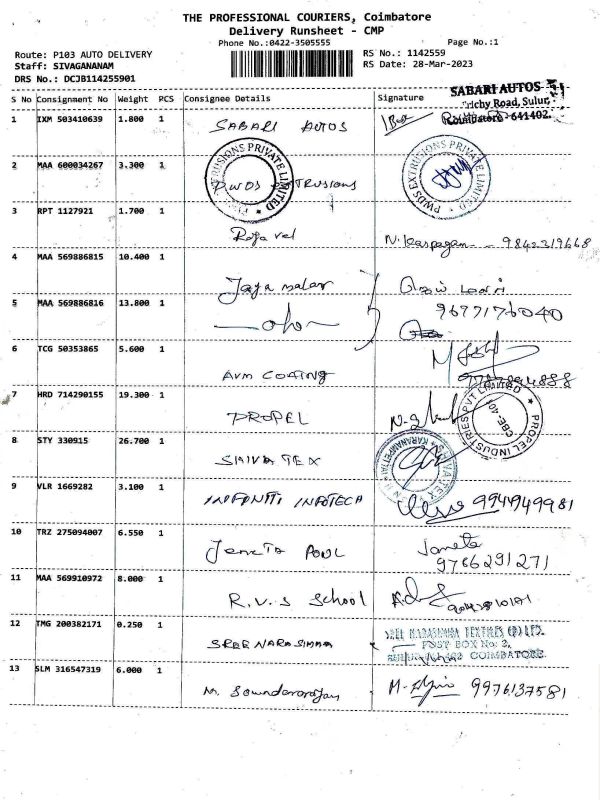 THE PROFESSIONAL COURIERS, Coimbatore
Delivery Runsheet - CMP
Phone No.:0422-3505555
Page No.:1
Route: P103 AUTO DELIVERY
Staff: SIVAGANANAM
DRS No.: DCJB114255901
RS No.: 1142559
RS Date: 28-Mar-2023
S No Consignment No Weight PCS Consignee Details Signature
SABARI AUTOS
Trichy Road, Sulur,
Coimbatore - 641402.
1 IXM 503410639 1.800 1 SABARI AUTOS
2 MAA 600034267 3.300 1 PWDS EXTRUSIONS
PWDS EXTRUSIONS PRIVATE LIMITED
3 RPT 1127921 1.700 1 Raja vel N. Karpagam 9842319668
4 MAA 569886815 10.400 1 Jaya malar
5 MAA 569886816 13.800 1 9677176040
6 TCG 50353865 5.600 1 AVM COATING
7 HRD 714290155 19.300 1 PROPEL
PROPEL INDUSTRIES PVT LIMITED
8 STY 330915 26.700 1 SHIVA TEX
9 VLR 1669282 3.100 1 INFONITI INFOTECH 9941949981
10 TRZ 275094007 6.550 1 Janeta
9766291271
11 MAA 569910972 8.000 1 R.V.S School
12 TMG 200382171 0.250 1 SREE NARASIMHA
SREE NARASIMHA TEXTILES (P) LTD.
POST BOX No: 2,
COIMBATORE
13 SLM 316547319 6.000 1 M. Soundararajan 9976137581